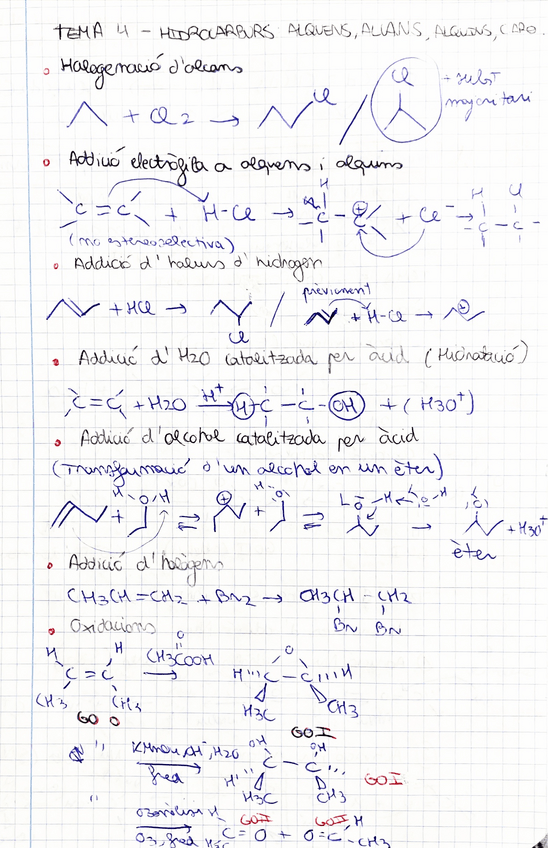 TEMA 4 - HIDROCARBURS ALQUENS, ALIANS, ALQUINS, CARO.
Halogenació d'alcans
+ Cl2 → Cl / Cl → subst
majoritari
Addició electròfila a alquens i alquins
C=C + H-Cl → H C - C⊕ + Cl⁻ → H Cl C - C
(no estereoselectiva)
Addició d'halurs d'hidrogen
prèviament
+ HCl → Cl / + H-Cl → ⊕
Addició d'H2O catalitzada per àcid (Hidratació)
C=C + H2O H⁺ → H-C-C-OH + (H3O⁺)
Addició d'alcohol catalitzada per àcid
(Transformació d'un alcohol en un èter)
+ H O H ⇌ ⊕ + H O ⇌ O H → O + H3O⁺
èter
Addició d'halògens
CH3CH=CH2 + Br2 → CH3CH-CH2
Br Br
Oxidacions
H H CH3COOH O O
C=C → H C-C H
CH3 CH3 H3C CH3
GO O GOI
" KMnO4, H2O OH OH
fred H C-C GOI
H3C CH3
" Ozonòlisi H GOI GOI H
O3, fred H3C C=O + O=C CH3